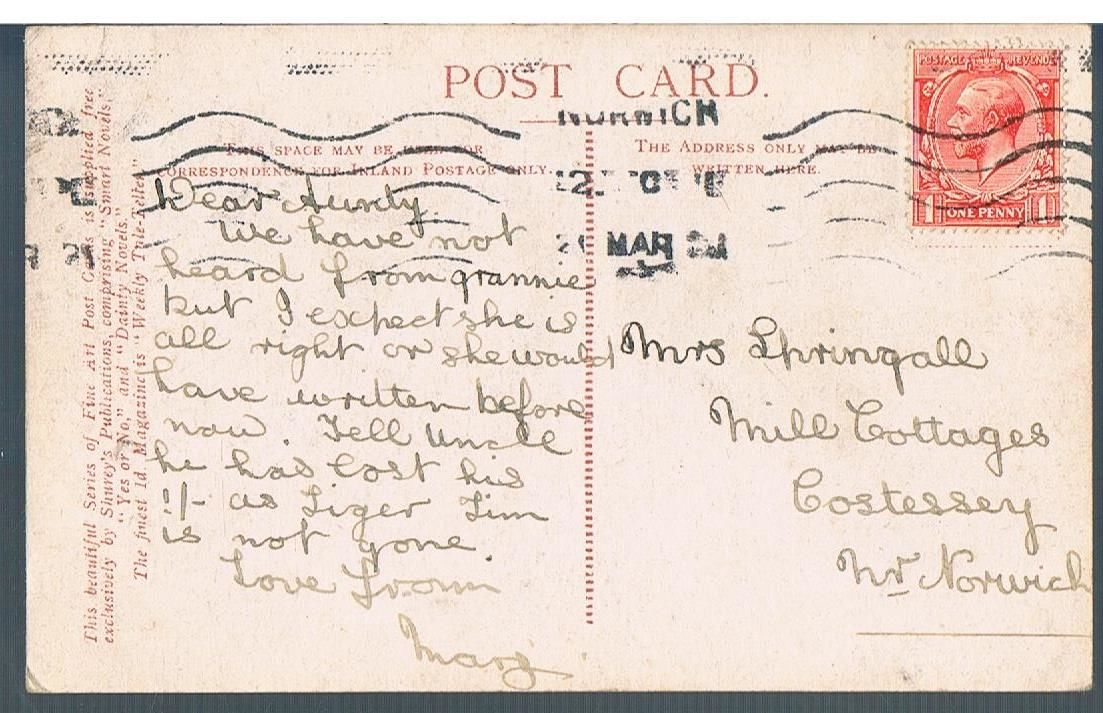 POST CARD.
POSTAGE REVENUE
1 ONE PENNY 1
NORWICH
MAR
THIS SPACE MAY BE USED FOR
CORRESPONDENCE FOR INLAND POSTAGE ONLY.
THE ADDRESS ONLY MAY BE
WRITTEN HERE.
This beautiful Series of Fine Art Post Cards is supplied free
exclusively by Shurey's Publications, comprising "Smart Novels"
"Yes or No," and "Dainty Novels"
The finest 1d. Magazine is "Weekly Tale-Teller"
Dear Aunty
We have not
heard from grannie
but I expect she is
all right or she would
have written before
now. Tell Uncle
he has lost his
1/- as Tiger Tim
is not gone.
Love from
Mary.
Mrs Springall
Mill Cottages
Costessey
Nr Norwich